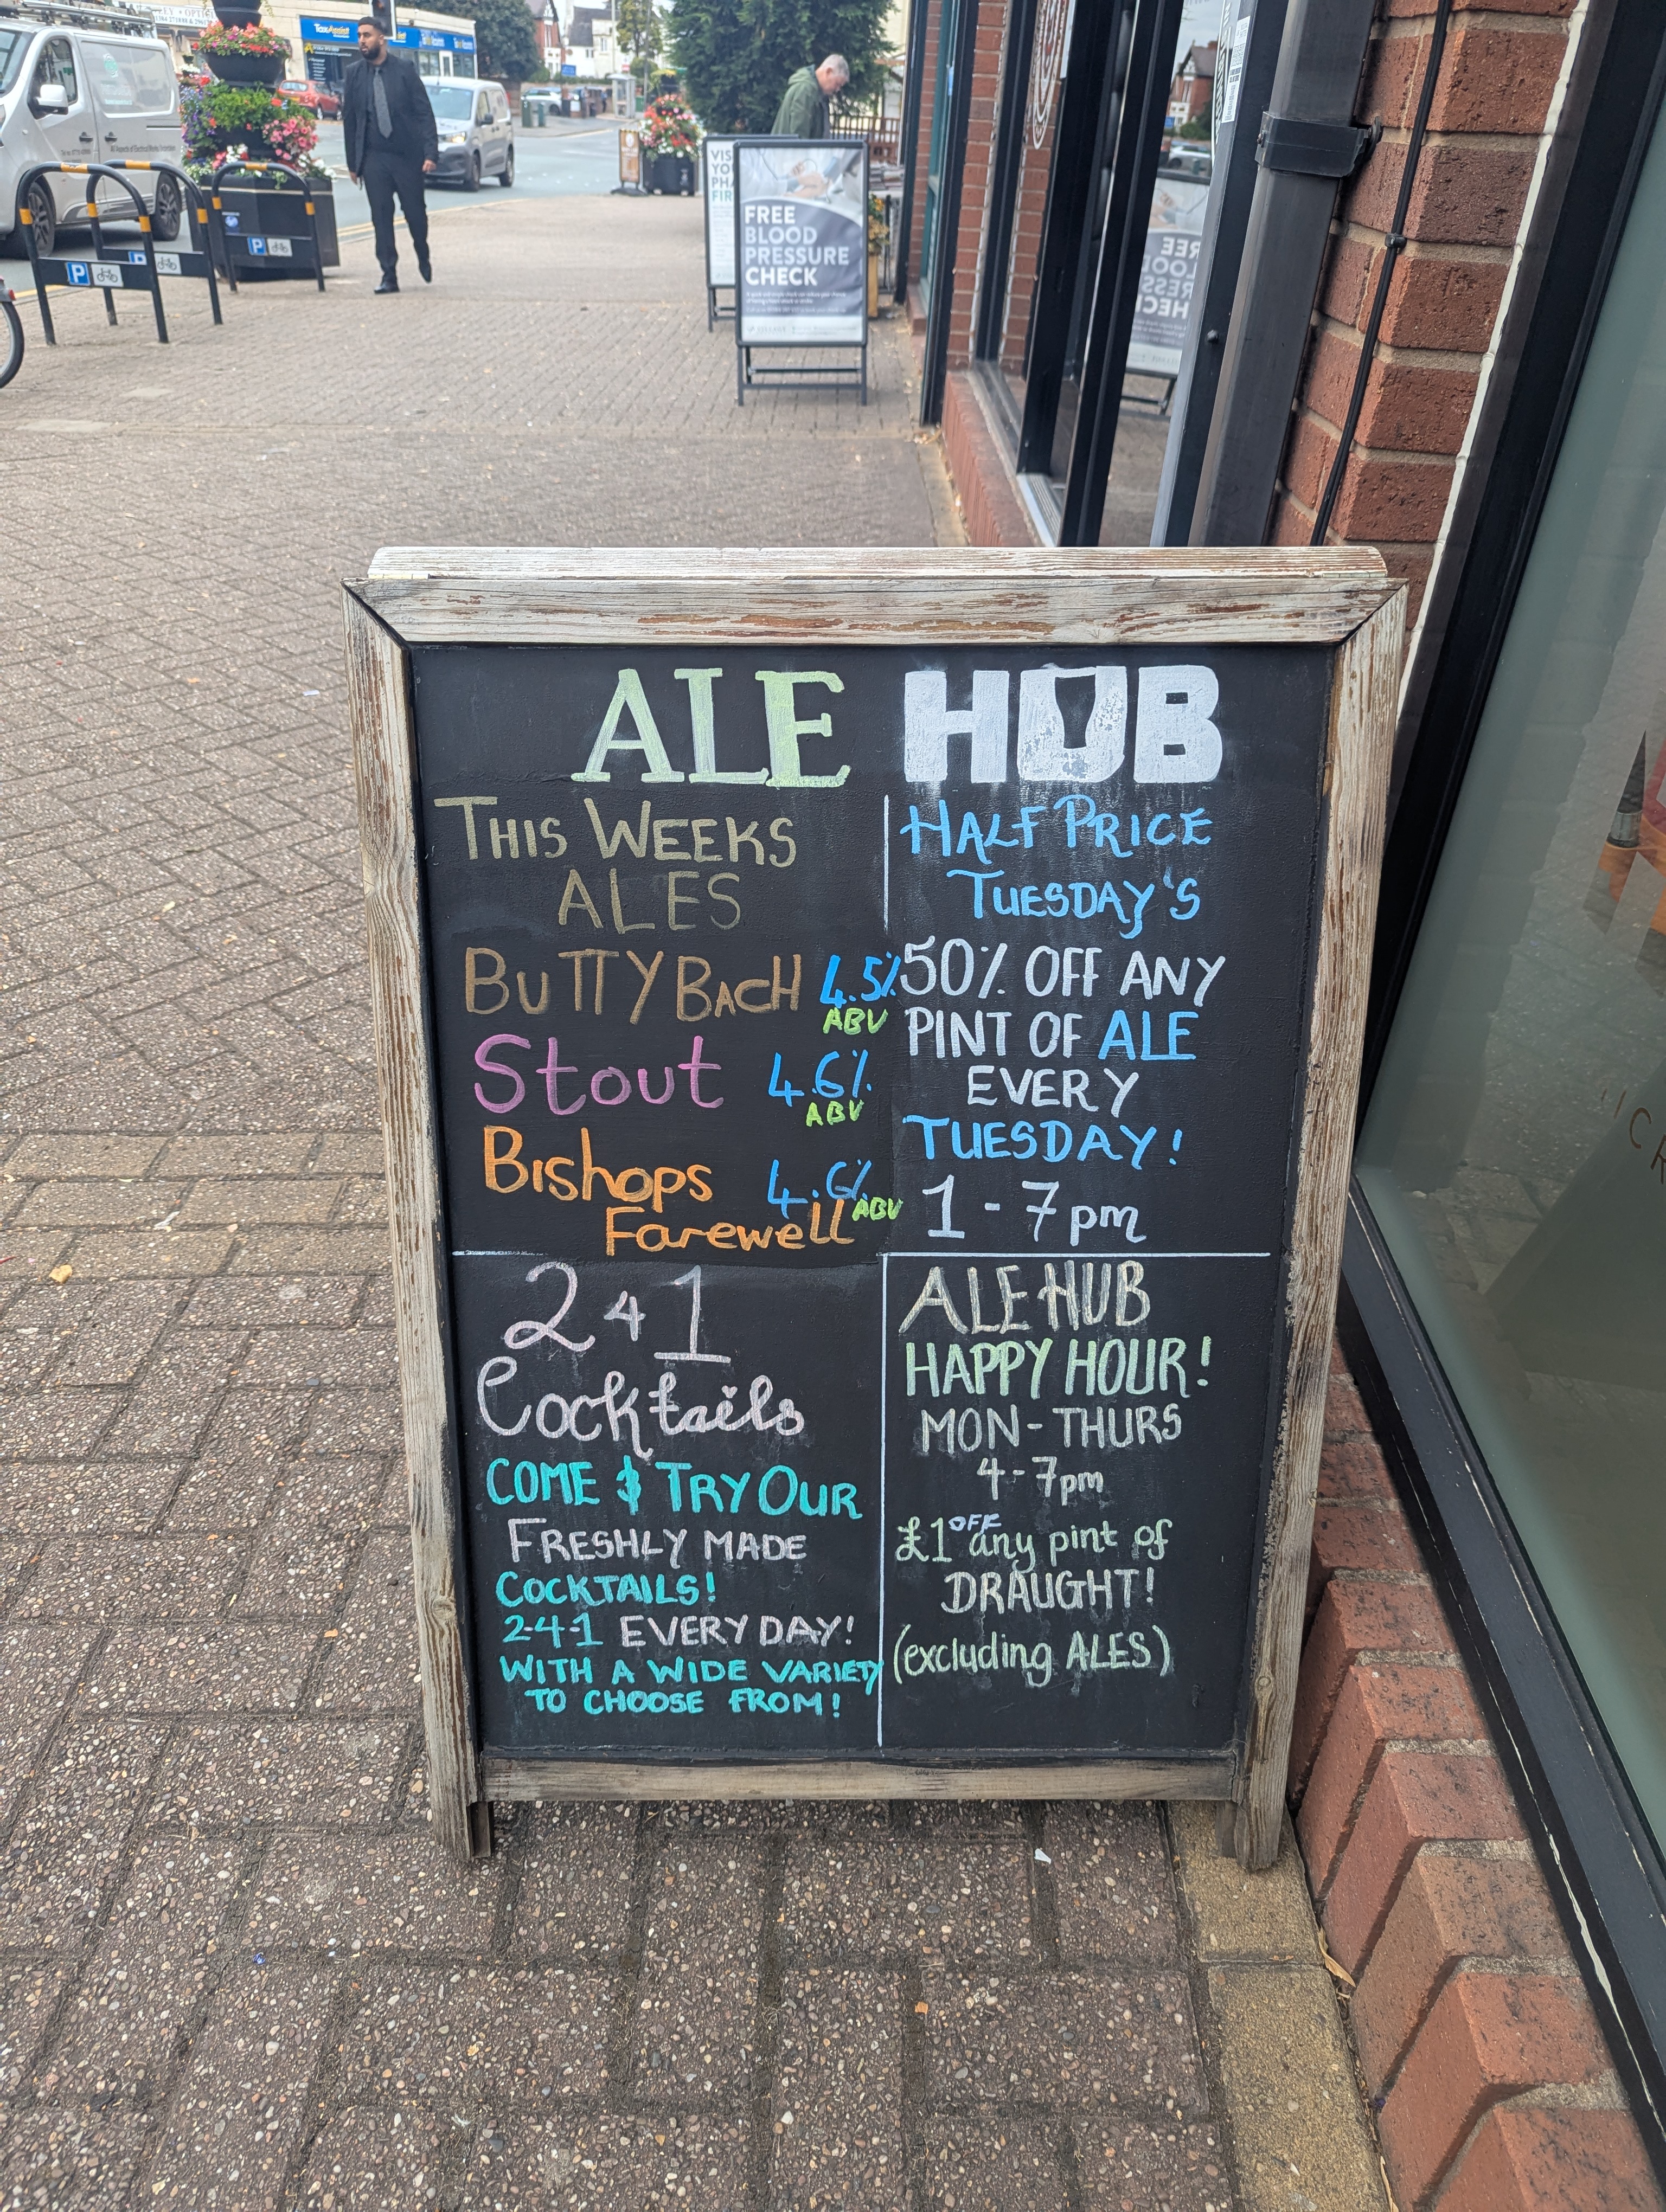 TaxAssist
P
P
P
VIS
YO
PHA
FIR
FREE
BLOOD
PRESSURE
CHECK
ALE HUB
THIS WEEKS
ALES
BUTTY BACH 4.5%
ABV
Stout 4.6%
ABV
Bishops 4.6%
Farewell ABV
HALF PRICE
TUESDAY'S
50% OFF ANY
PINT OF ALE
EVERY
TUESDAY!
1-7pm
2 4 1
Cocktails
COME & TRY OUR
FRESHLY MADE
COCKTAILS!
2-4-1 EVERY DAY!
WITH A WIDE VARIETY
TO CHOOSE FROM!
ALE HUB
HAPPY HOUR!
MON-THURS
4-7pm
£1 OFF any pint of
DRAUGHT!
(excluding ALES)